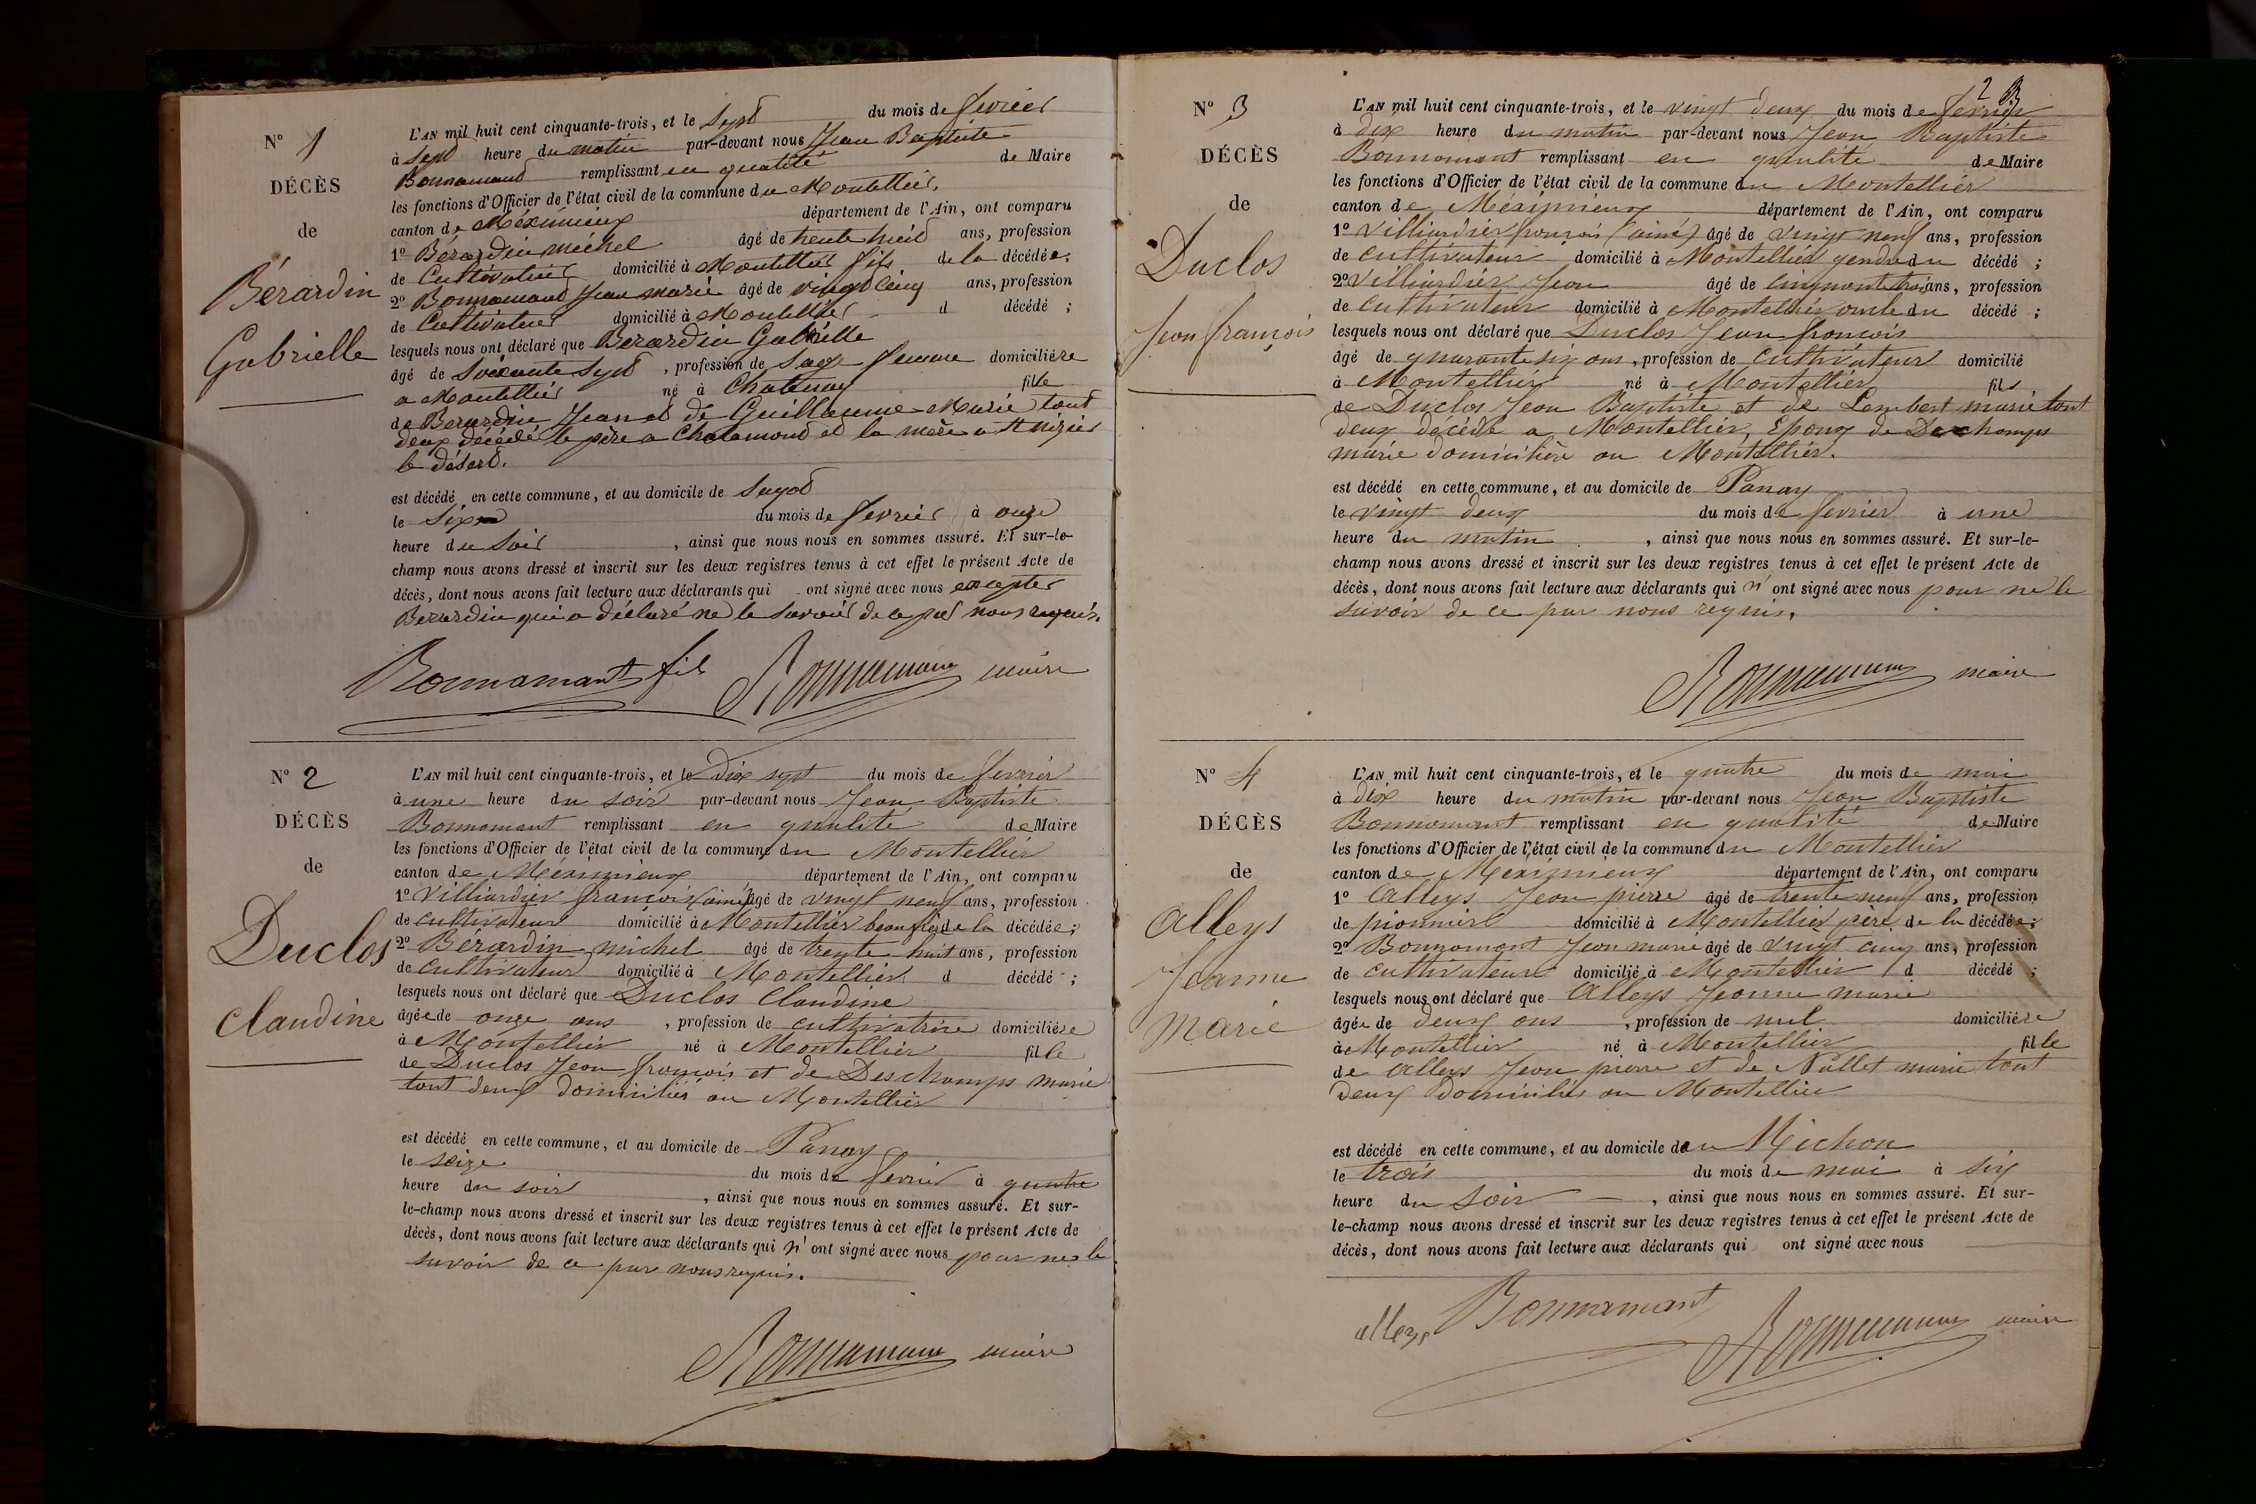 N° 1
DÉCÈS
de
Bérardin
Gabrielle
L'AN mil huit cent cinquante-trois, et le sept du mois de fevrier
à sept heure du matin par-devant nous Jean Baptiste
Bonnamant remplissant en qualité de Maire
les fonctions d'Officier de l'état civil de la commune du Montellier,
canton de Méximieux département de l'Ain, ont comparu
1° Bérardin michel âgé de trente huit ans, profession
de Cultivateur domicilié à Montellier fils de la décédée;
2° Bonnamant Jean marie âgé de vingt cinq ans, profession
de Cultivateur domicilié à Montellier d décédé ;
lesquels nous ont déclaré que Bérardin Gabrielle
âgé de soixante sept , profession de sage femme domiciliére
a Montellier né à Chatenay fille
de Berardin Jean et de Guillaume Marie tout
deux décédé le père a Chalamond et la mère a St nizier
le désert.
est décédé en cette commune, et au domicile de
le six du mois de fevrier à onze
heure du soir , ainsi que nous nous en sommes assuré. Et sur-le-
champ nous avons dressé et inscrit sur les deux registres tenus à cet effet le présent Acte de
décès, dont nous avons fait lecture aux déclarants qui ont signé avec nous excepter
Berardin qui a déclaré ne le savoir de ce par nous requis.
Bonnamant fils Bonnamant maire
N° 2
DÉCÈS
de
Duclos
Claudine
L'AN mil huit cent cinquante-trois, et le Dix sept du mois de fevrier
à une heure du soir par-devant nous Jean Baptiste
Bonnamant remplissant en qualité de Maire
les fonctions d'Officier de l'état civil de la commune du Montellier
canton de Méximieux département de l'Ain, ont comparu
1° Villiardier françois (ainé) âgé de vingt neuf ans, profession
de cultivateur domicilié à Montellier beaufrère de la décédée;
2° Berardin michel âgé de trente huit ans, profession
de cultivateur domicilié à Montellier d décédé ;
lesquels nous ont déclaré que Duclos Claudine
âgée de onze ans , profession de cultivatrice domiciliére
à Montellier né à Montellier fille
de Duclos Jean françois et de Deschamps marie
tout deux domiciliés au Montellier
est décédé en cette commune, et au domicile de Panay
le seize du mois de fevrier à quatre
heure du soir , ainsi que nous nous en sommes assuré. Et sur-
le-champ nous avons dressé et inscrit sur les deux registres tenus à cet effet le présent Acte de
décès, dont nous avons fait lecture aux déclarants qui n'ont signé avec nous pour ne le
savoir de ce par nous requis.
Bonnamant maire
2
N° 3
DÉCÈS
de
Duclos
Jean françois
L'AN mil huit cent cinquante-trois, et le vingt deux du mois de fevrier
à dix heure du matin par-devant nous Jean Baptiste
Bonnamant remplissant en qualité de Maire
les fonctions d'Officier de l'état civil de la commune du Montellier
canton de Méximieux département de l'Ain, ont comparu
1° Villiardier françois (ainé) âgé de vingt neuf ans, profession
de cultivateur domicilié à Montellier gendre du décédé ;
2° Villiardier Jean âgé de cinquante trois ans, profession
de cultivateur domicilié à Montellier oncle du décédé ;
lesquels nous ont déclaré que Duclos Jean françois
âgé de quarante six ans , profession de cultivateur domicilié
à Montellier né à Montellier fils
de Duclos Jean Baptiste et de Lembert marie tout
deux decédé a Montellier, Epoux de Deschamps
marie domiciliére au Montellier.
est décédé en cette commune, et au domicile de Panay
le vingt deux du mois de fevrier à une
heure du matin , ainsi que nous nous en sommes assuré. Et sur-le-
champ nous avons dressé et inscrit sur les deux registres tenus à cet effet le présent Acte de
décès, dont nous avons fait lecture aux déclarants qui n'ont signé avec nous pour ne le
savoir de ce par nous requis.
Bonnamant maire
N° 4
DÉCÈS
de
Alleys
Jeanne
Marie
L'AN mil huit cent cinquante-trois, et le quatre du mois de mai
à dix heure du matin par-devant nous Jean Baptiste
Bonnamant remplissant en qualité de Maire
les fonctions d'Officier de l'état civil de la commune du Montellier
canton de Méximieux département de l'Ain, ont comparu
1° Alleys Jean pierre âgé de trente neuf ans, profession
de pionnier domicilié à Montellier père de la décédée;
2° Bonnamant Jean marie âgé de vingt cinq ans, profession
de cultivateur domicilié à Montellier d décédé ;
lesquels nous ont déclaré que Alleys Jeanne marie
âgée de deux ans , profession de nul domiciliére
à Montellier né à Montellier fille
de Alleys Jean pierre et de Nallet marie tout
deux domiciliés au Montellier
est décédé en cette commune, et au domicile du Michon
le trois du mois de mai à six
heure du soir , ainsi que nous nous en sommes assuré. Et sur-
le-champ nous avons dressé et inscrit sur les deux registres tenus à cet effet le présent Acte de
décès, dont nous avons fait lecture aux déclarants qui ont signé avec nous
alleys Bonnamant Bonnamant maire